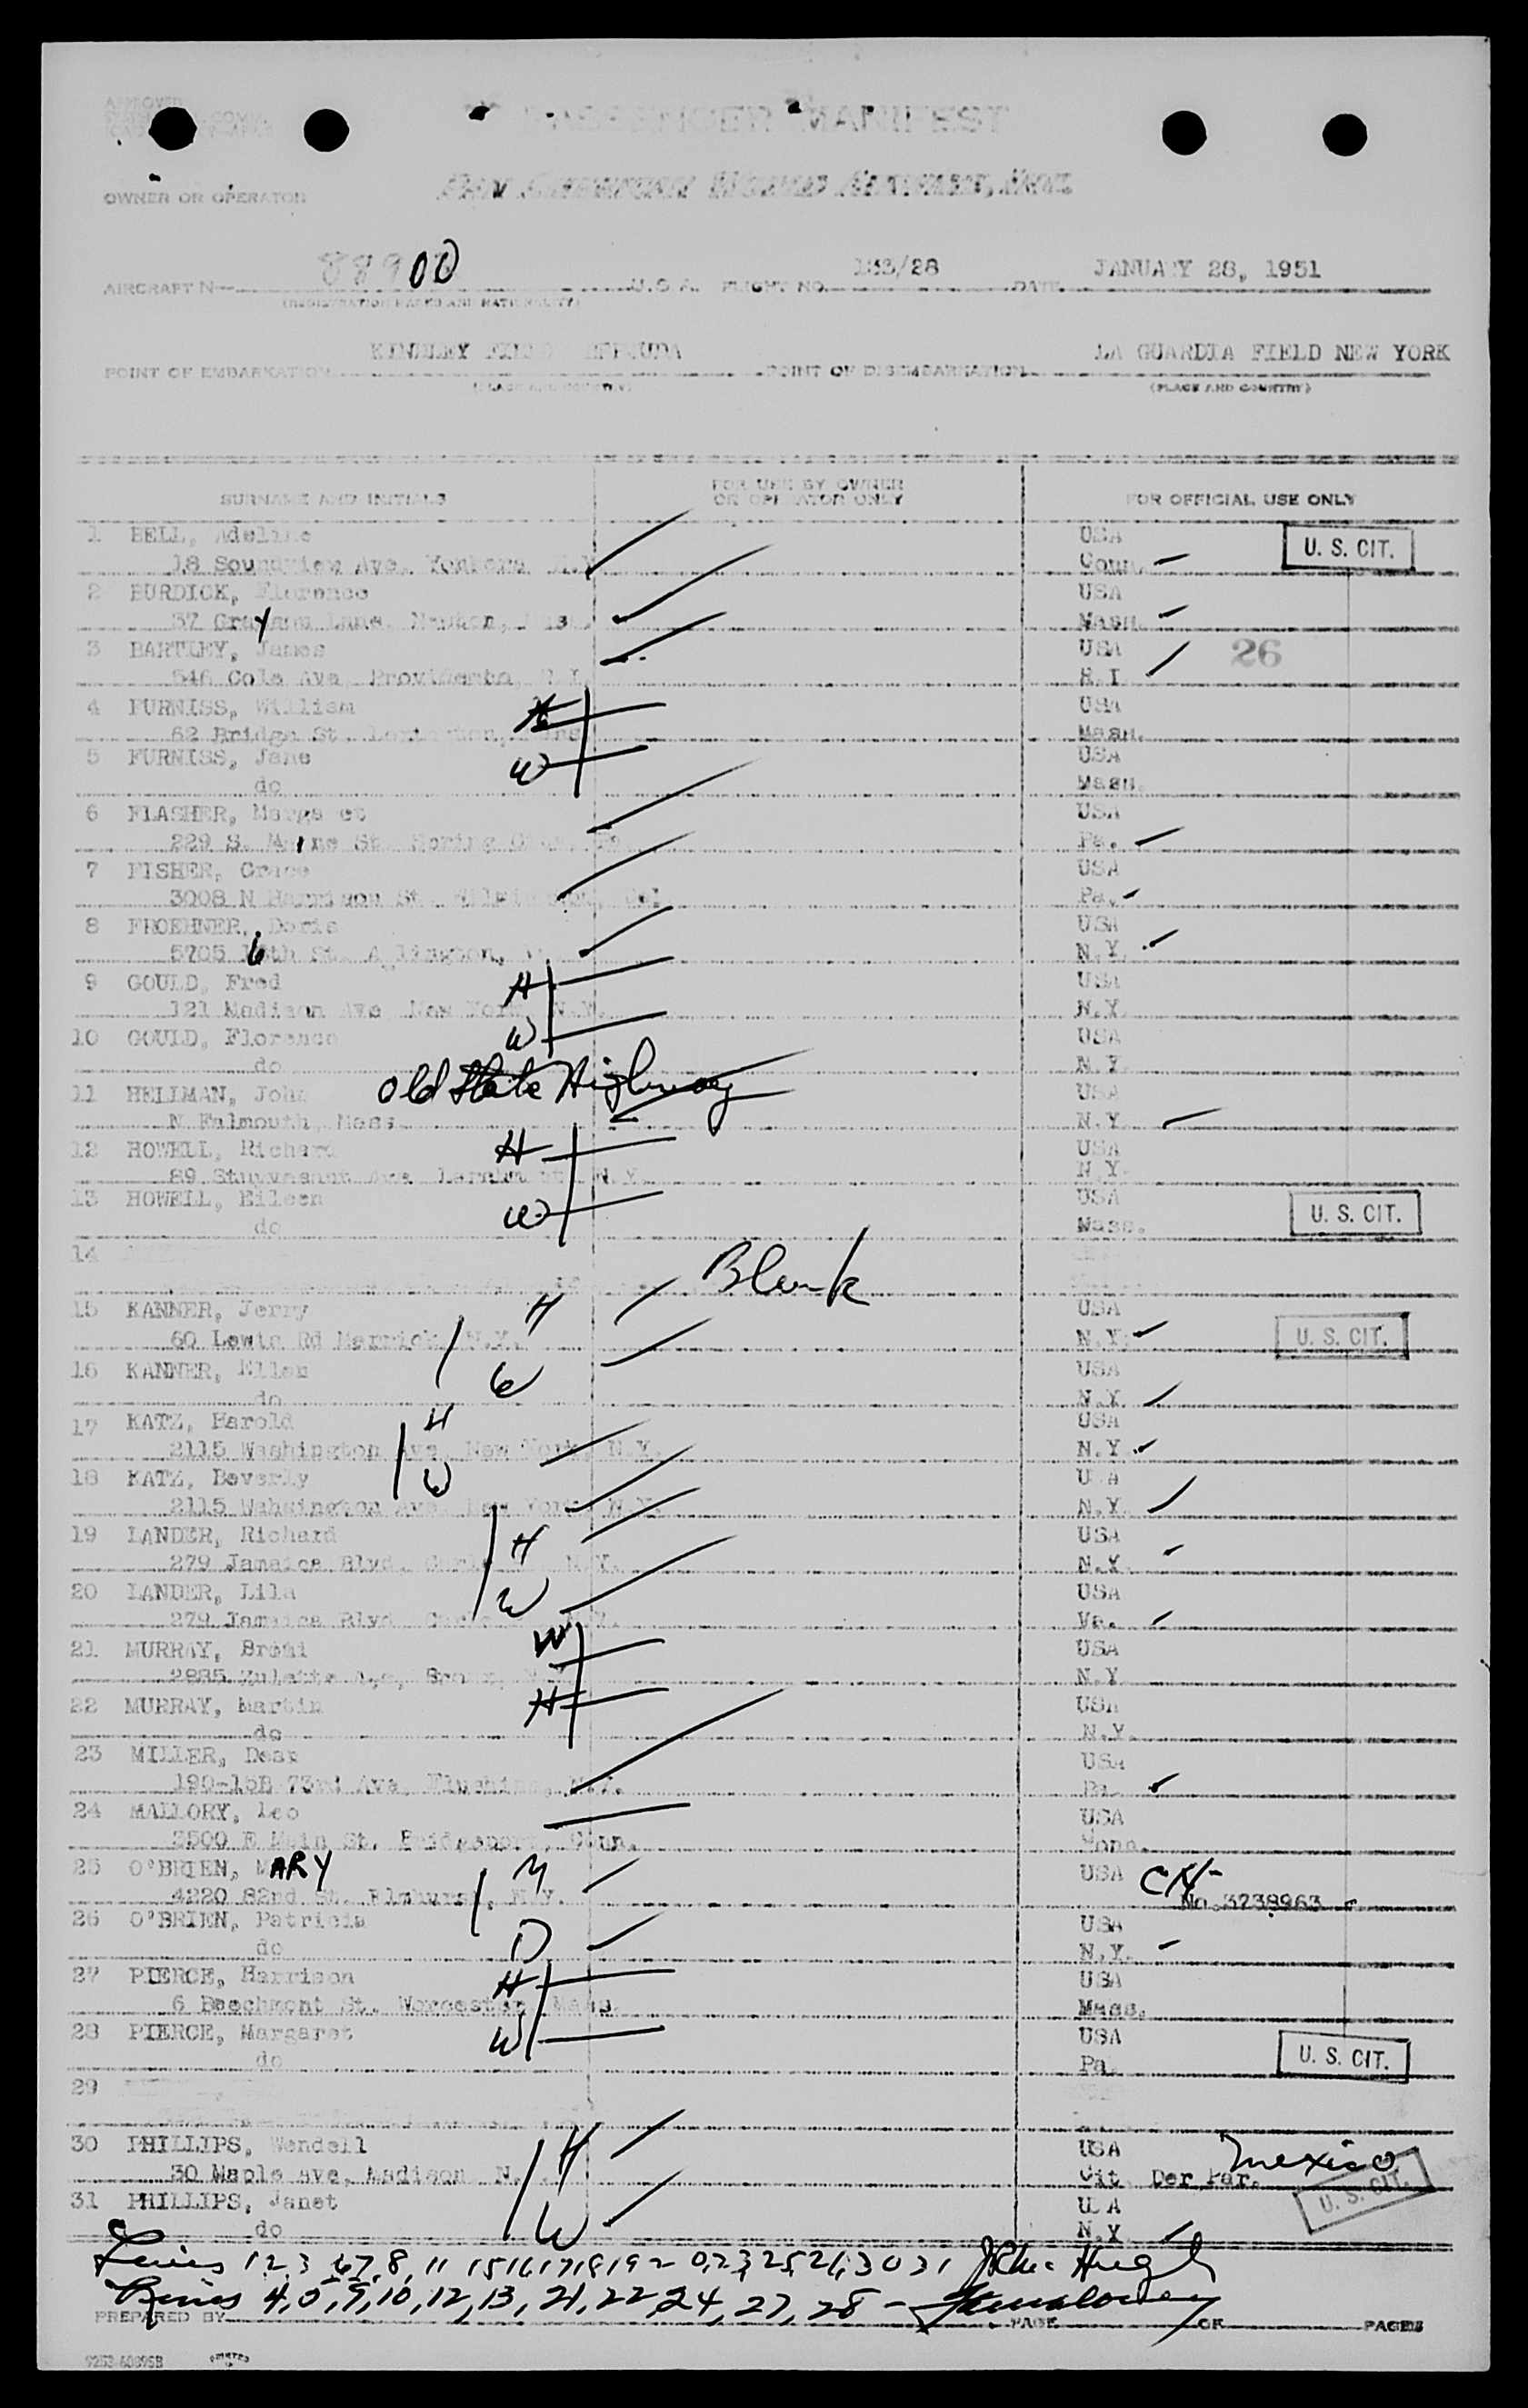 PASSENGER MANIFEST
OWNER OR OPERATOR PAN AMERICAN WORLD AIRWAYS, INC.
AIRCRAFT N— 88900 U.S.A. FLIGHT NO. /28 DATE JANUARY 28, 1951
POINT OF EMBARKATION KINDLEY FIELD BERMUDA POINT OF DISEMBARKATION LA GUARDIA FIELD NEW YORK
(PLACE AND COUNTRY) (PLACE AND COUNTRY)
SURNAME AND INITIALS FOR USE BY OWNER OR OPERATOR ONLY FOR OFFICIAL USE ONLY
1 BELL, Adeline USA U. S. CIT.
18 Soundview Ave. Yonkers N.Y. Conn.
2 BURDICK, Florence USA
37 Lane, Mass.
3 BARTLEY, James USA 26
546 Cole Ave Providence R.I. R.I.
4 FURNISS, William H USA
62 Bridge St. Mass.
5 FURNISS, Jane W USA
do Mass.
6 FLASHER, Margaret USA
229 S. St. Spring Pa.
7 FISHER, Grace USA
3008 N Harrison St. Pa.
8 FROEHNER, Doris USA
5705 16th St. N.Y.
9 GOULD, Fred H USA
121 Madison Ave New York N.Y. N.Y.
10 GOULD, Florence W USA
do N.Y.
11 HELLMAN, John Old State Highway USA
N Falmouth, Mass. N.Y.
12 HOWELL, Richard H USA
89 Stuyvesant Ave N.Y. N.Y.
13 HOWELL, Eileen W USA U. S. CIT.
do Mass.
14 Blank
15 KANNER, Jerry H USA
60 Lewis Rd Merrick N.Y. N.Y. U. S. CIT.
16 KANNER, Ellen W USA
do N.Y.
17 KATZ, Harold H USA
2115 Washington Ave, New York, N.Y. N.Y.
18 KATZ, Beverly W USA
2115 Wahsington Ave. New York N.Y. N.Y.
19 LANDER, Richard H USA
279 Jamaica Blvd. N.Y. N.Y.
20 LANDER, Lila W USA
279 Jamaica Blvd N.Y. Va.
21 MURRAY, W USA
2885 Ave, N.Y.
22 MURRAY, Martin H USA
do N.Y.
23 MILLER, USA
190-15B 73rd Ave, Flushing, N.Y. Pa.
24 MALLORY, Leo USA
2500 E Main St. Bridgeport, Conn. Conn.
25 O'BRIEN, MARY M USA CN
4220 82nd St. Elmhurst, N.Y. No. 3738963
26 O'BRIEN, Patricia D USA
do N.Y.
27 PIERCE, Harrison H USA
6 Beechmont St. Worcester Mass. Mass.
28 PIERCE, Margaret W USA U. S. CIT.
do Pa.
29
30 PHILLIPS, Wendell H USA Mexico
30 Maple Ave, Madison N. Cit. Der Par. U. S. CIT.
31 PHILLIPS, Janet W USA
do N.Y.
Lines 1 2 3 67, 8, 11 15 16 17 18 19 20, 23 25 26, 30 31
Lines 4, 5, 9, 10, 12, 13, 21, 22, 24, 27, 28 –
PREPARED BY PAGE OF PAGES